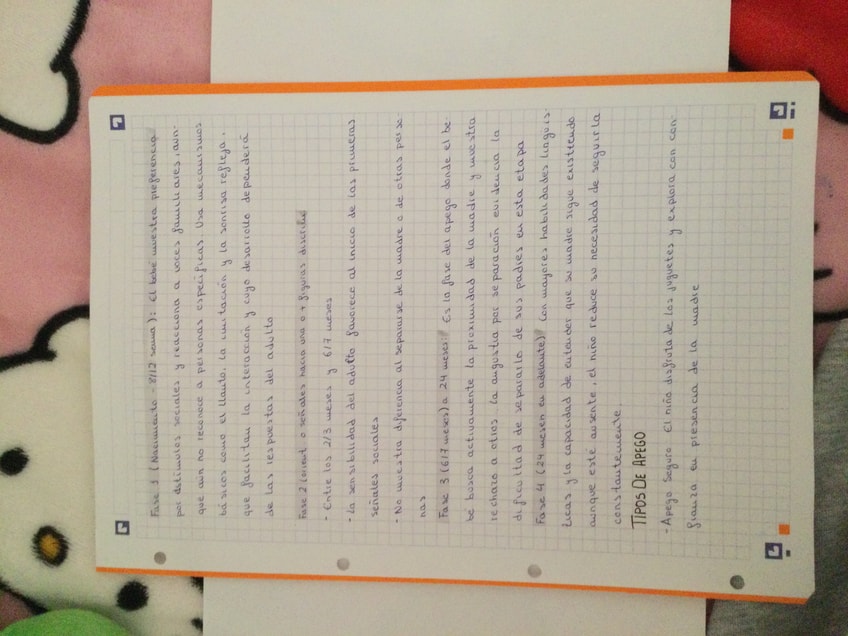 Fase 1 (Nacimiento - 8/12 seman): El bebé muestra preferencia
por estímulos sociales y reacciona a voces familiares, aun-
que aún no reconoce a personas específicas. Usa mecanismos
básicos como el llanto, la imitación y la sonrisa refleja,
que facilitan la interacción y cuyo desarrollo dependerá
de las respuestas del adulto
Fase 2 (orient. o señales hacia una o + figuras discrim
- Entre los 2/3 meses y 6/7 meses
- La sensibilidad del adulto favorece al inicio de las primeras
señales sociales
- No muestra diferencia al separarse de la madre o de otras perso
nas
Fase 3 (6/7 meses) a 24 meses: Es la fase del apego donde el be-
be busca activamente la proximidad de la madre y muestra
rechazo a otros la angustia por separación evidencia la
dificultad de separarlo de sus padres en esta etapa
Fase 4 (24 meses en adelante) Con mayores habilidades linguis-
ticas y la capacidad de entender que su madre sigue existiendo
aunque esté ausente, el niño reduce su necesidad de seguirla
constantemente.
TIPOS DE APEGO
- Apego Seguro: El niño disfruta de los juguetes y explora con con-
fianza en presencia de la madre